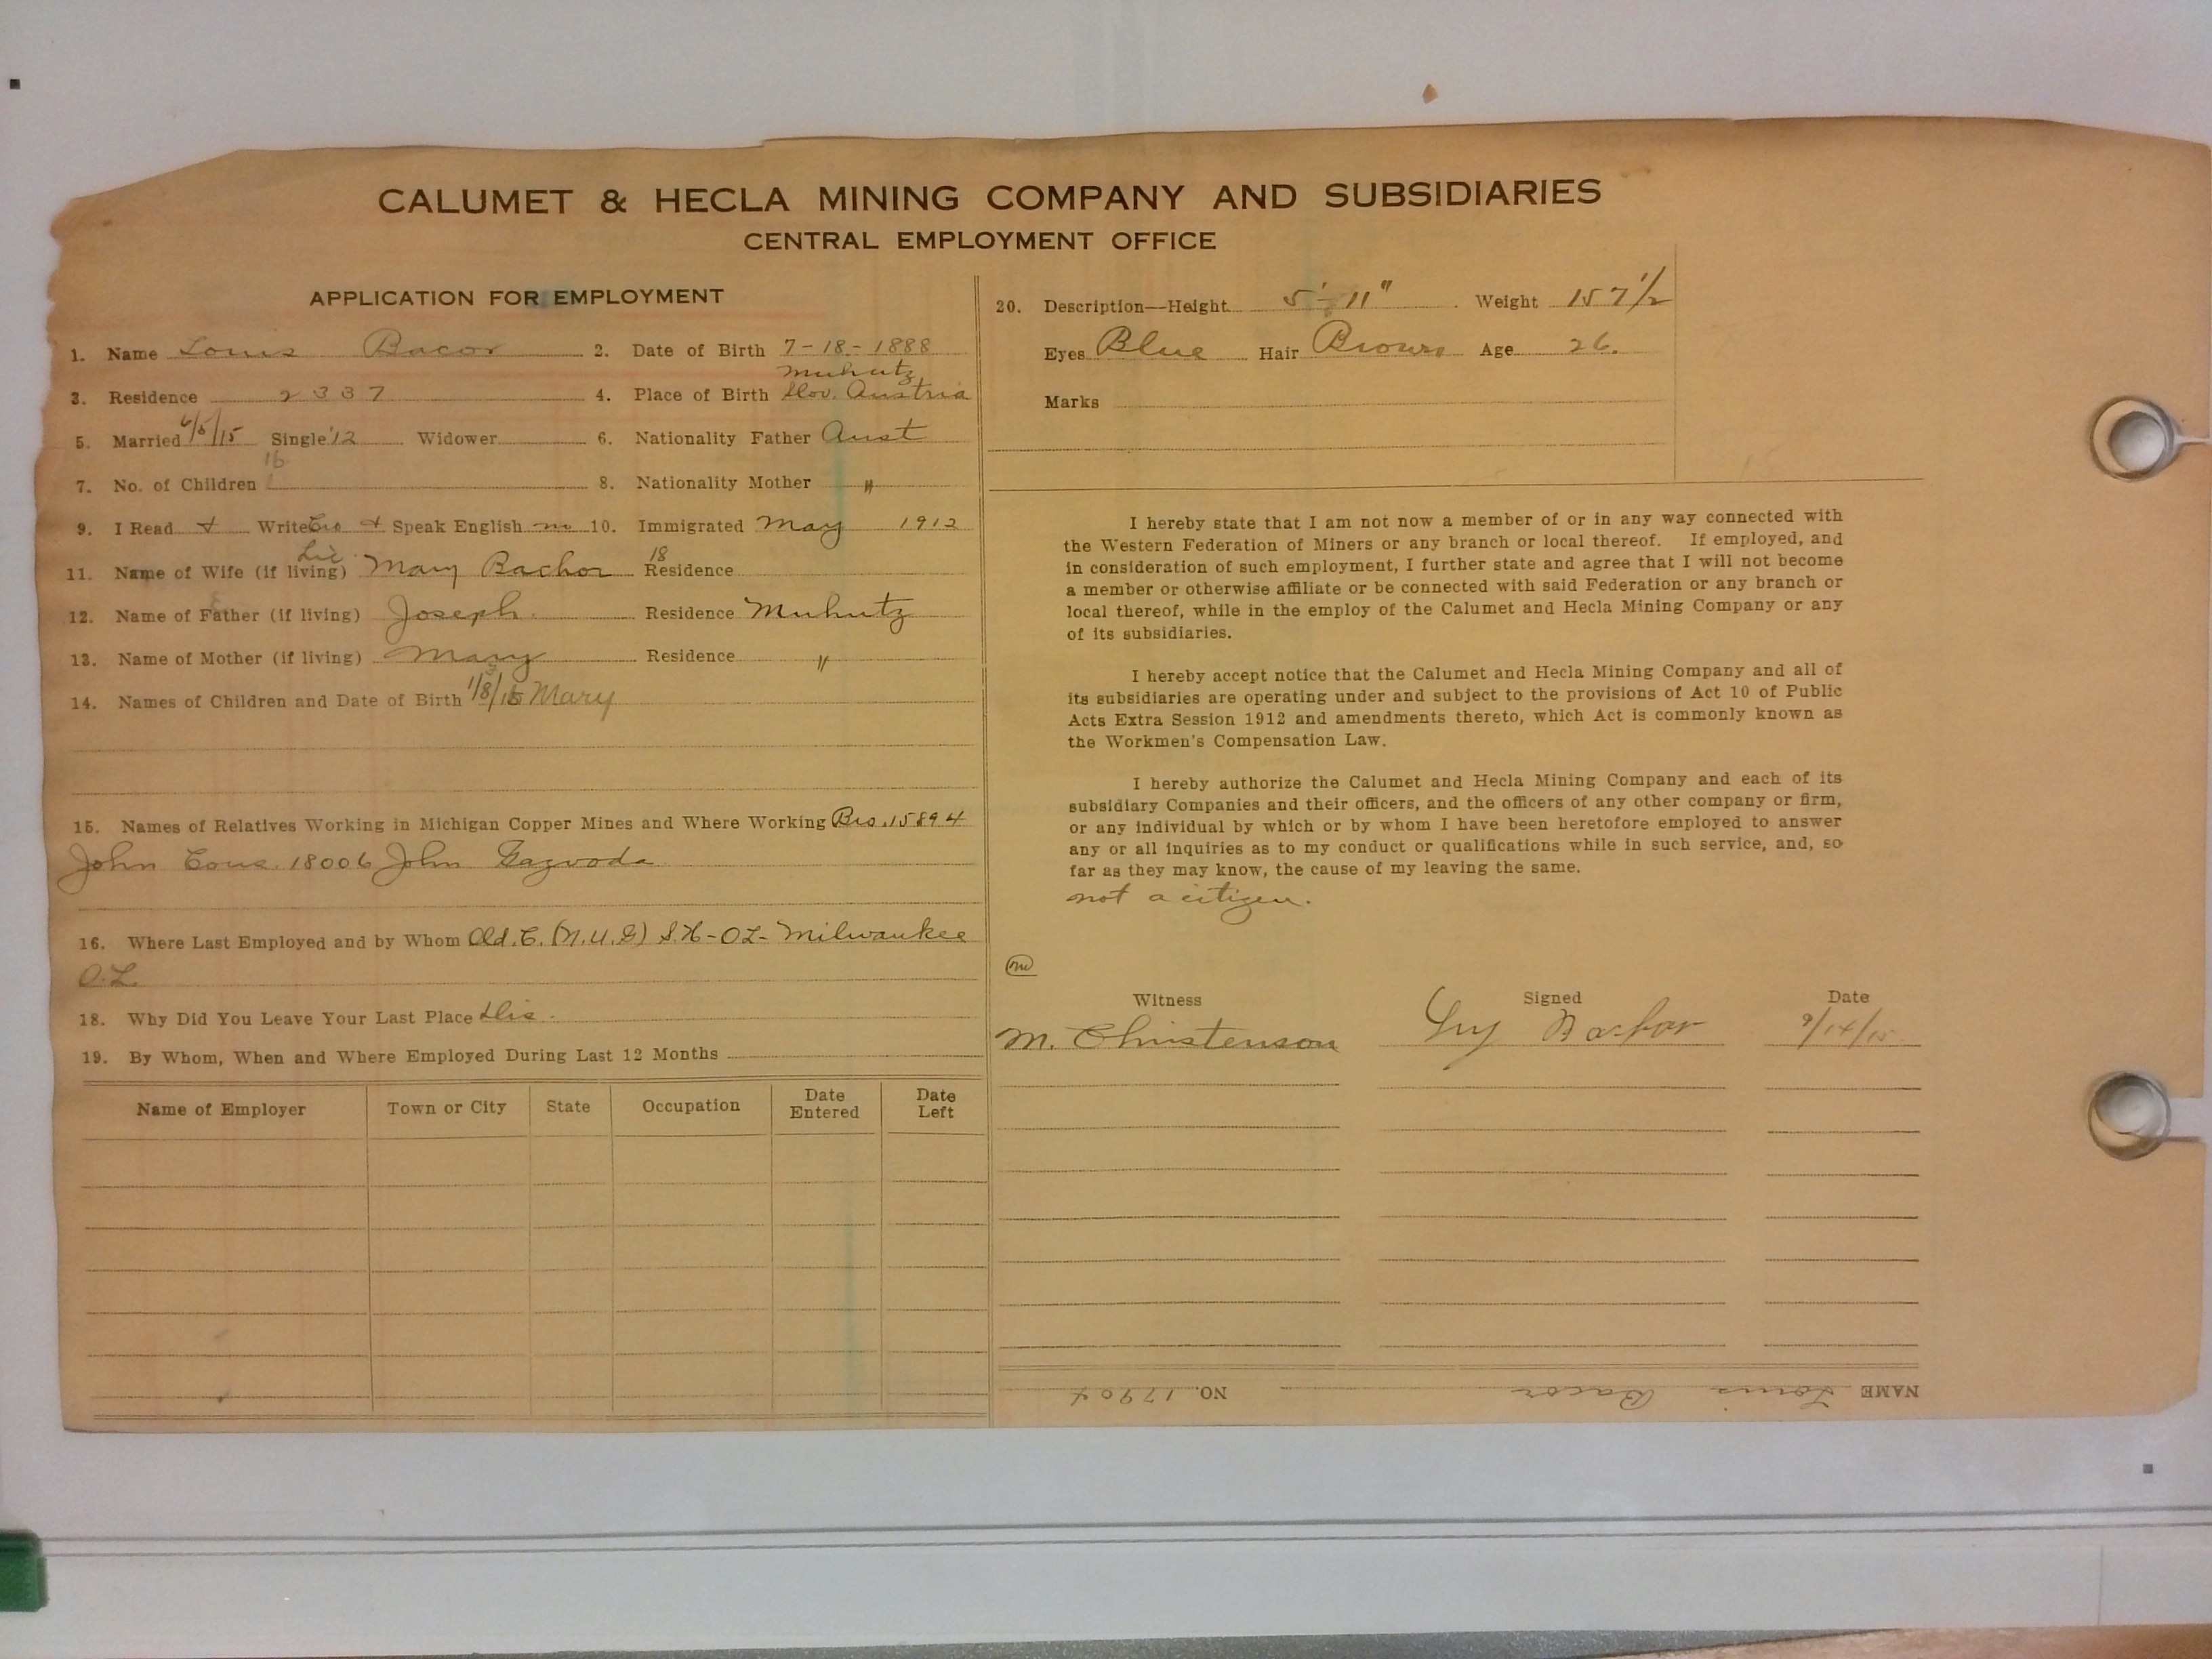 CALUMET & HECLA MINING COMPANY AND SUBSIDIARIES
CENTRAL EMPLOYMENT OFFICE
APPLICATION FOR EMPLOYMENT
1. Name Louis Bacor 2. Date of Birth 7-18-1888
Muhutz
3. Residence 2337 4. Place of Birth Slov. Austria
5. Married 6/5/15 Single '12 Widower 6. Nationality Father Aust
16
7. No. of Children 1 8. Nationality Mother "
9. I Read & Write Cro & Speak English no 10. Immigrated May 1912
Lic. 18
11. Name of Wife (if living) Mary Bachor Residence
12. Name of Father (if living) Joseph Residence Muhutz
13. Name of Mother (if living) Mary Residence "
14. Names of Children and Date of Birth 1/8/16 Mary
15. Names of Relatives Working in Michigan Copper Mines and Where Working Bro. 15894
John Cous. 18006 John Gazvoda
16. Where Last Employed and by Whom Old. C. (N.U.G) S.H-OL- Milwaukee
O.L.
18. Why Did You Leave Your Last Place Dis.
19. By Whom, When and Where Employed During Last 12 Months
Name of Employer Town or City State Occupation Date Entered Date Left
20. Description—Height 5'-11" Weight 157 1/2
Eyes Blue Hair Brown Age 26.
Marks
I hereby state that I am not now a member of or in any way connected with
the Western Federation of Miners or any branch or local thereof. If employed, and
in consideration of such employment, I further state and agree that I will not become
a member or otherwise affiliate or be connected with said Federation or any branch or
local thereof, while in the employ of the Calumet and Hecla Mining Company or any
of its subsidiaries.
I hereby accept notice that the Calumet and Hecla Mining Company and all of
its subsidiaries are operating under and subject to the provisions of Act 10 of Public
Acts Extra Session 1912 and amendments thereto, which Act is commonly known as
the Workmen's Compensation Law.
I hereby authorize the Calumet and Hecla Mining Company and each of its
subsidiary Companies and their officers, and the officers of any other company or firm,
or any individual by which or by whom I have been heretofore employed to answer
any or all inquiries as to my conduct or qualifications while in such service, and, so
far as they may know, the cause of my leaving the same.
not a citizen.
Witness Signed Date
M. Christenson Bachor 9/14/15
NAME Louis Bacor NO. 17904